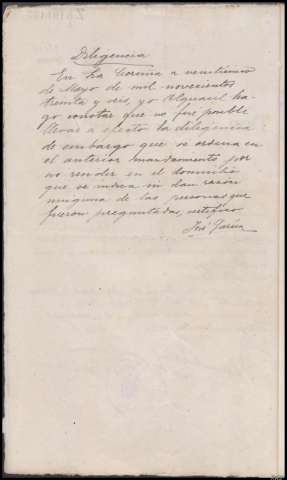 Diligencia
En La Coruña a veinticinco
de Mayo de mil novecientos
treinta y seis, yo Alguacil ha-
go constar que no fue posible
llevar a efecto la diligencia
de embargo que se ordena en
el anterior mandamiento por
no render en el domicilio
que se indica ni dan razon
ninguna de las personas que
fueron preguntadas, certifico.
José García